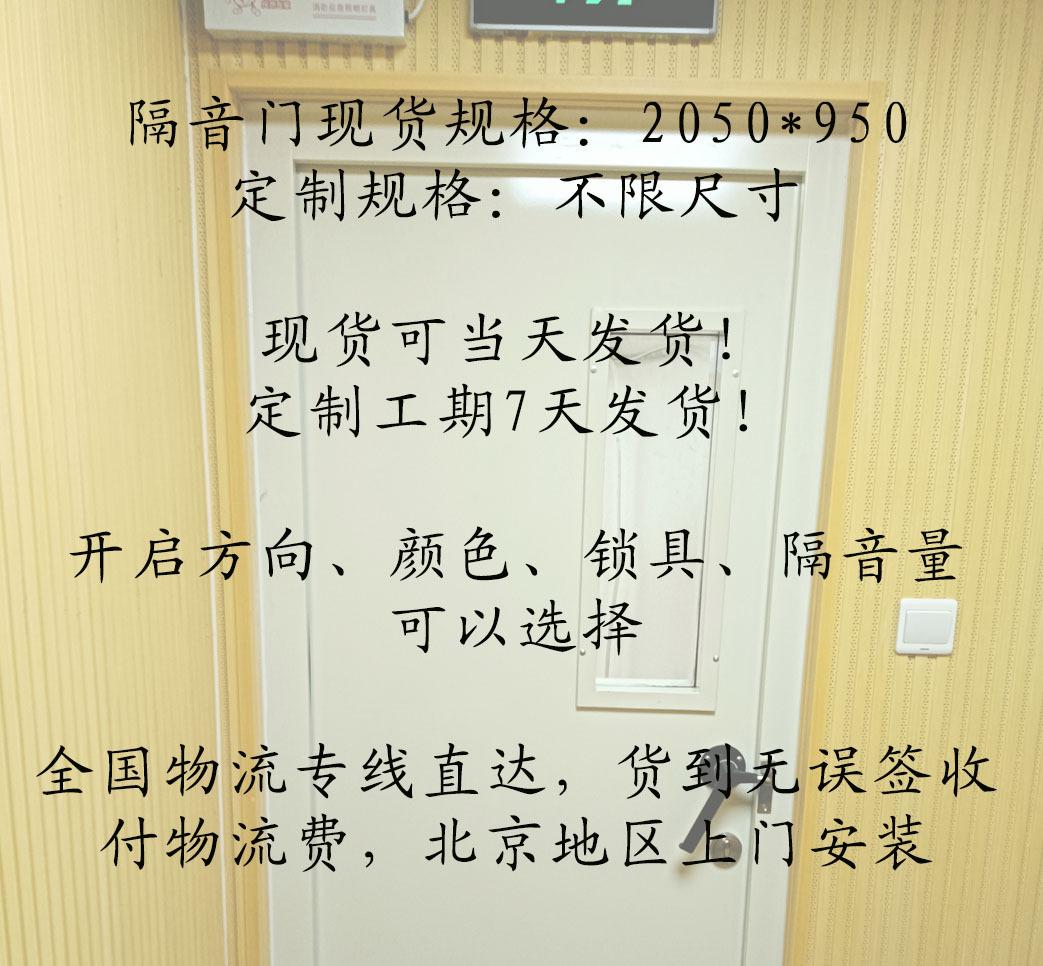 消防应急照明灯具
隔音门现货规格：2050*950
定制规格：不限尺寸
现货可当天发货！
定制工期7天发货！
开启方向、颜色、锁具、隔音量
可以选择
全国物流专线直达，货到无误签收
付物流费，北京地区上门安装